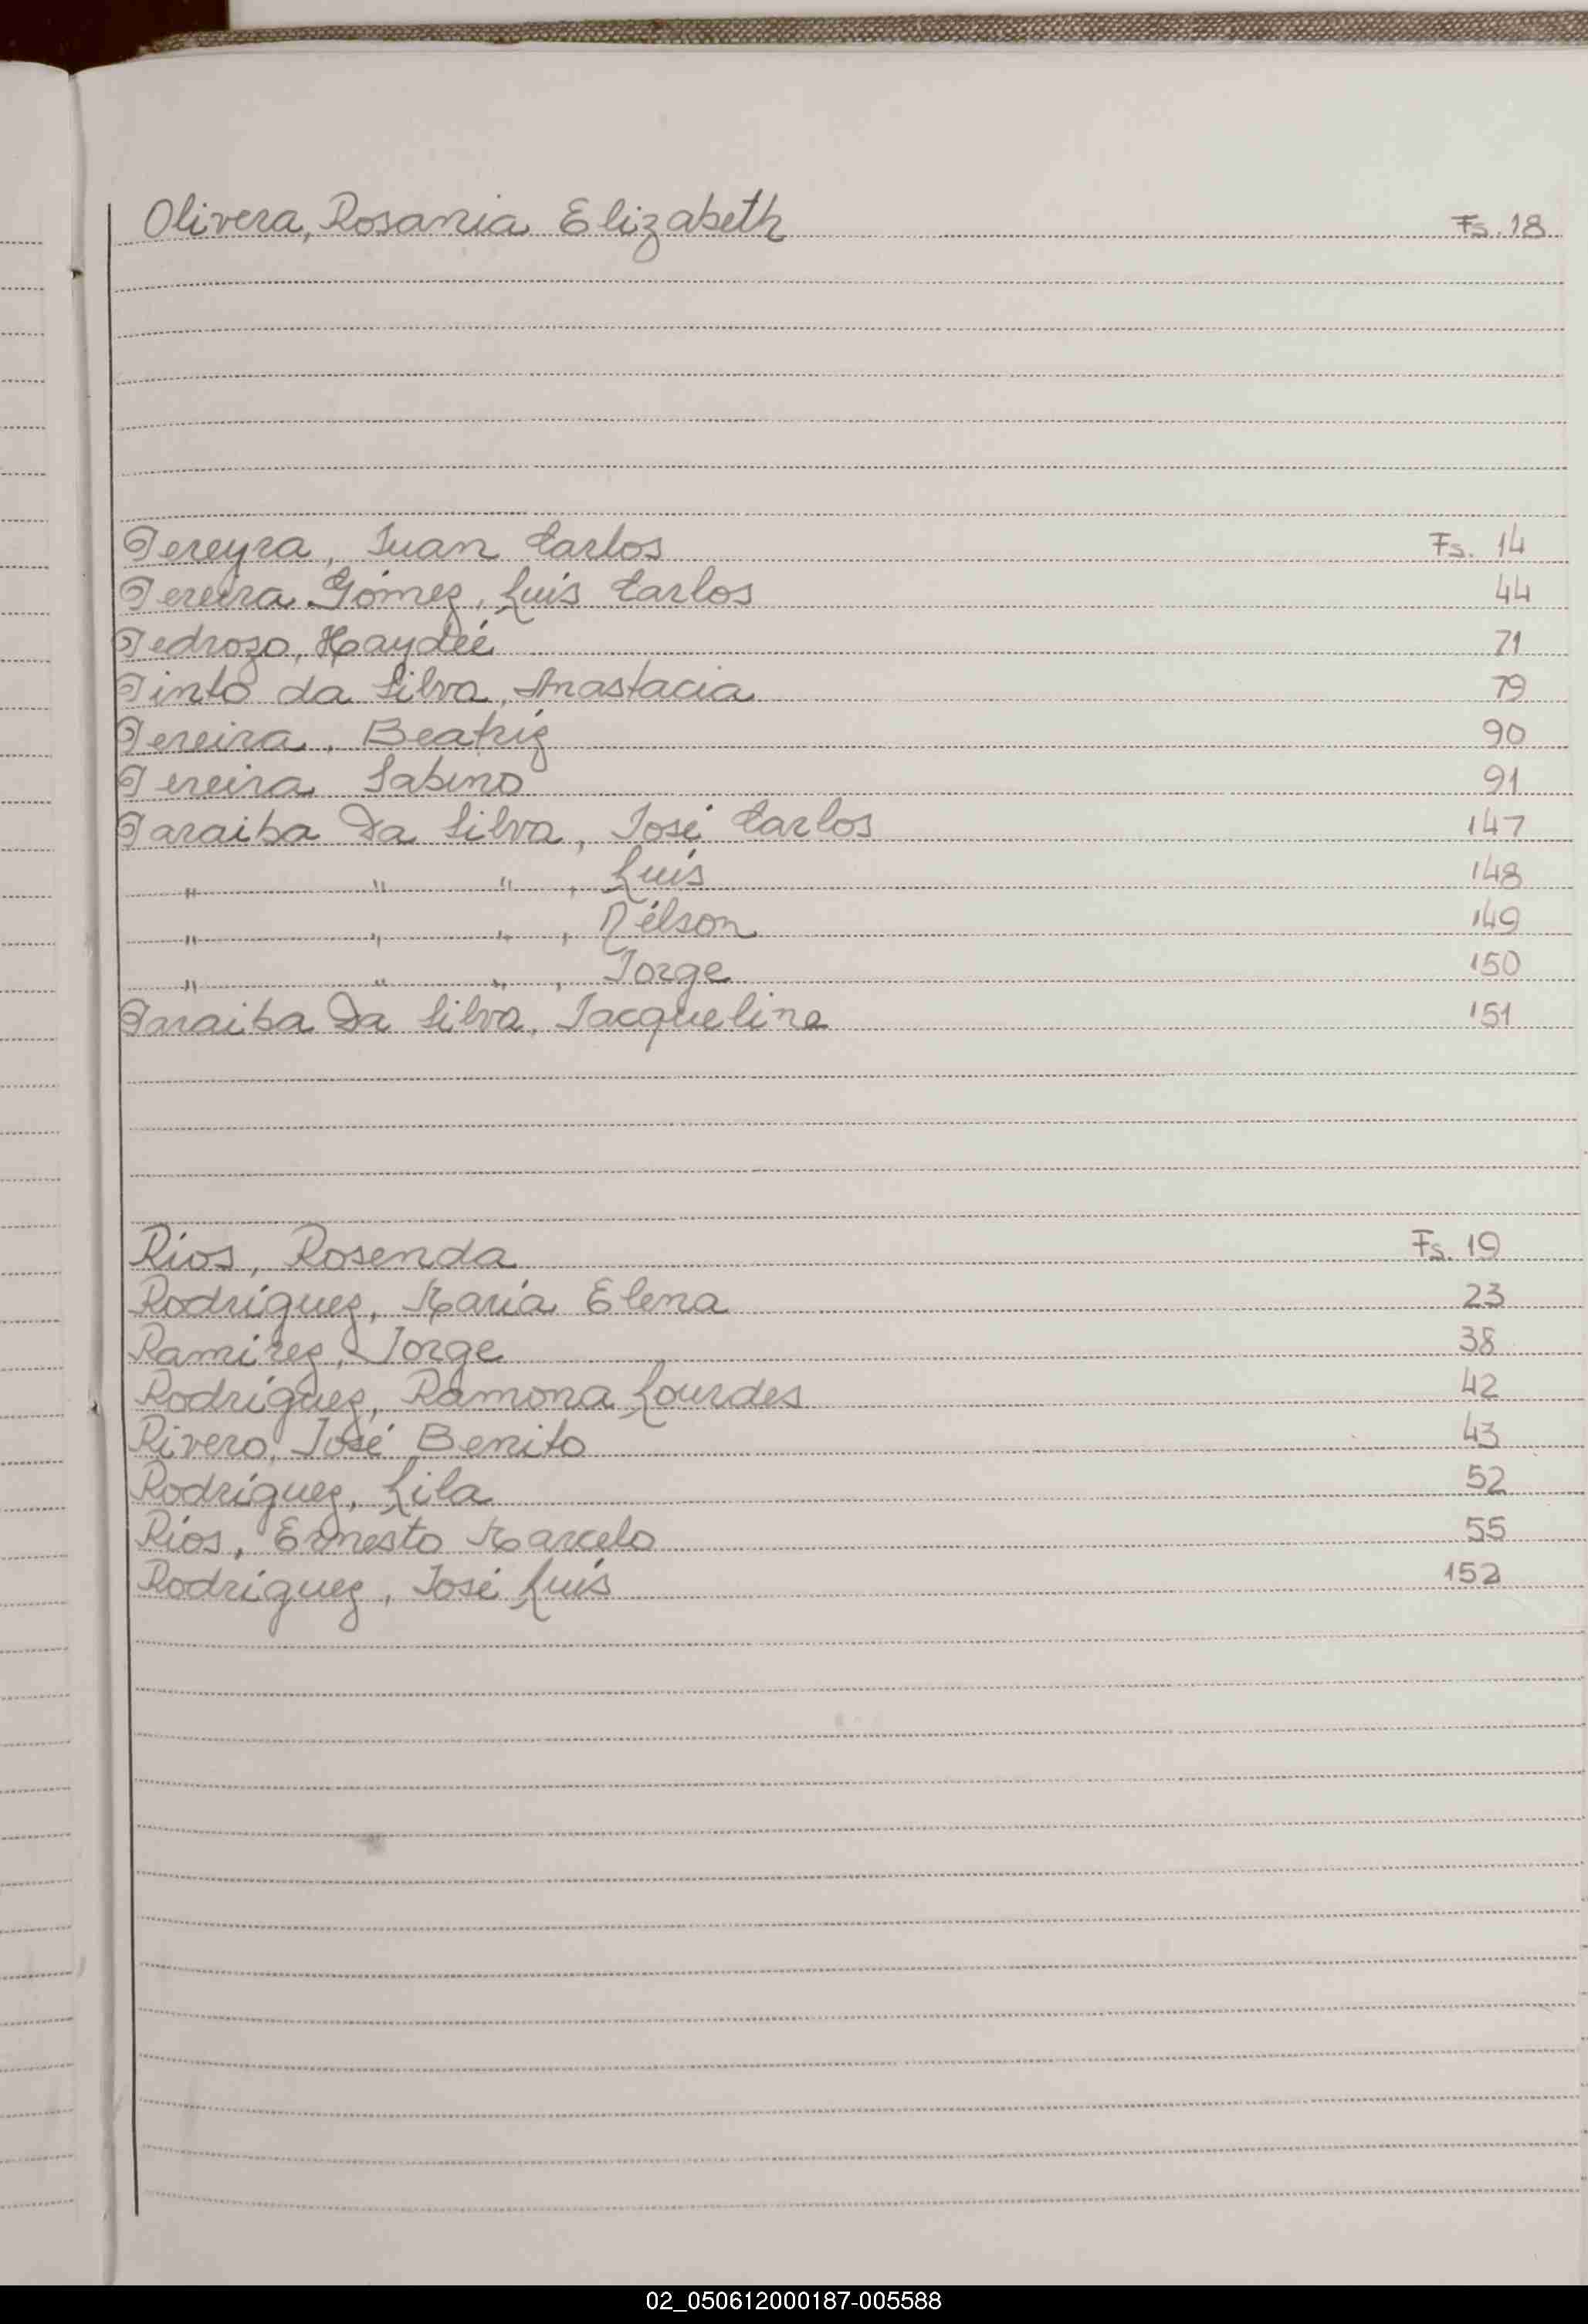 Olivera, Rosania Elizabeth Fs. 18
Pereyra, Juan Carlos Fs. 14
Pereira Gómez, Luis Carlos 44
Pedrozo, Haydée 71
Pinto da Silva, Anastacia 79
Pereira, Beatriz 90
Pereira Sabino 91
Paraiba Da Silva, José Carlos 147
" " " , Luis 148
" " " , Nélson 149
" " " , Jorge 150
Paraiba Da Silva, Jacqueline 151
Ríos, Rosenda Fs. 19
Rodríguez, María Elena 23
Ramírez, Jorge 38
Rodríguez, Ramona Lourdes 42
Rivero, José Benito 43
Rodríguez, Lila 52
Ríos, Ernesto Marcelo 55
Rodríguez, José Luis 152
02_050612000187-005588